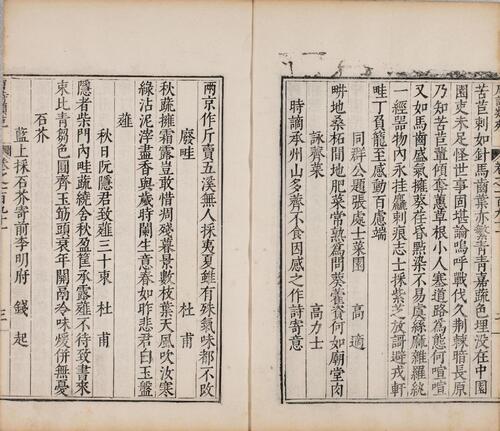 苦苣刺如針馬齒葉亦繁青青嘉蔬色埋没在中園
園吏未足怪世事固堪論嗚呼戰伐久荆棘暗長原
乃知苦苣輩傾奪蕙草根小人塞道路為態何喧喧
又如馬齒盛氣擁葵荏昏點染不易虞絲麻雜羅紈
一經器物内永挂麤刺痕志士採紫芝放謌避戎軒
畦丁負籠至感動百慮端
同群公題張處士菜園 高適
畊地桑柘間地肥菜常熟為問葵藿資何如廟堂肉
詠薺菜 高力士
時謫承州山多薺不食因感之作詩寄意
兩京作斤賣五溪無人採夷夏雖有殊氣味都不改
廢畦 杜甫
秋蔬擁霜露豈敢惜凋殘暮景數枝葉天風吹汝寒
綠沾泥滓盡香與歲時闌生意春如昨悲君白玉盤
薤
秋日阮隱君致薤三十束 杜甫
隱者柴門内畦蔬繞舍秋盈筐承露薤不待致書求
束比青芻色圓齊玉筯頭衰年關鬲冷味暖併無憂
石芥
藍上採石芥寄前李明府 錢起